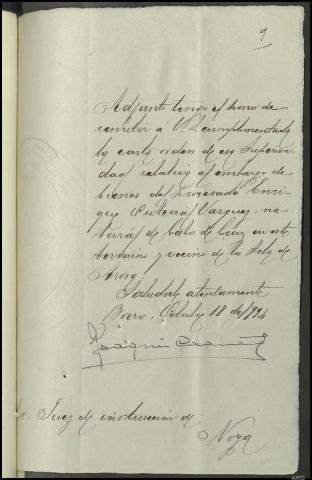 9
Adjunto tengo el honor de
remitir á V.S. cumplimentada
la carta orden de esa Superiori
dad relativa al embargo de
bienes del procesado Enri
que Outeiral Vazquez, na
tural de Cabo de Cruz en este
termino y vecino de la Isla de
Arosa
Saludale atentamente
Boiro, Octubre 18 de 1924
Joaquin
Sr. Juez de instruccion de
Noya